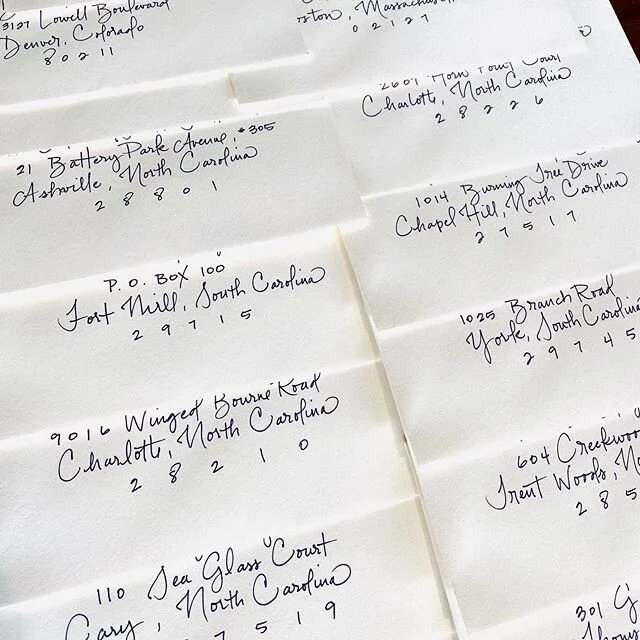 3127 Lowell Boulevard
Denver, Colorado
8 0 2 1 1
21 Battery Park Avenue, #305
Ashville, North Carolina
2 8 8 0 1
P. O. BOX 100
Fort Mill, South Carolina
2 9 7 1 5
9016 Winged Bourne Road
Charlotte, North Carolina
2 8 2 1 0
110 Sea Glass Court
Cary, North Carolina
7 5 1 9
Massachuse
0 2 1 2 7
Court
Charlotte, North Carolina
2 8 2 2 6
1014 Burning Tree Drive
Chapel Hill, North Carolina
2 7 5 1 7
1025 Branch Road
York, South Carolina
2 9 7 4 5
604 Creekwoo
Trent Woods, No
2 8 5
301 G